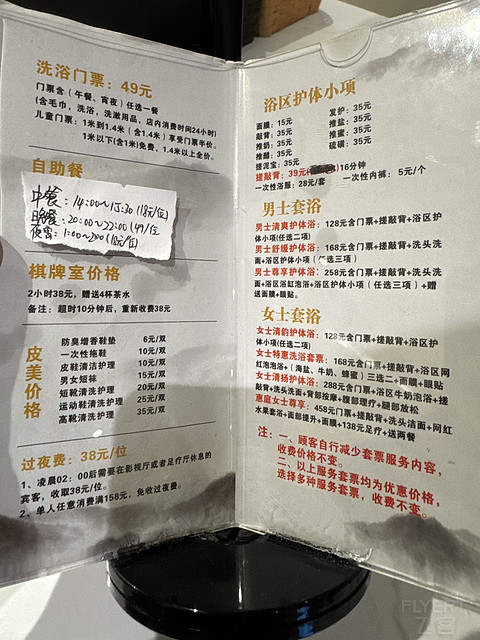 洗浴门票：49元
门票含（午餐、宵夜）任选一餐
(含毛巾，洗浴，洗漱用品，店内消费时间24小时)
儿童门票：1米到1.4米（含1.4米）享受门票半价。
1米以下(含1米)免费，1.4米以上全价。
自助餐
中餐：14:00~15:30 (18元/位)
晚餐：20:00~22:00
夜宵：1:00~2:00
棋牌室价格
2小时38元，赠送4杯茶水
备注：超时10分钟后，重新收费38元
皮美价格
防臭增香鞋垫 6元/双
一次性拖鞋 10元/双
皮鞋清洁护理 10元/双
男女短袜 15元/双
短靴清洗护理 20元/双
运动鞋清洗护理 25元/双
高靴清洗护理 35元/双
过夜费：38元/位
1、凌晨02：00后需要在影视厅或者足疗厅休息的
宾客，收取38元/位。
2、单人任意消费满158元，免收过夜费。
浴区护体小项
面膜：15元 发护：35元
敲背：35元 推盐：35元
推奶：35元 推蜜：35元
推醋：35元 硫磺：35元
搓泥宝：35元
搓敲背：39元 16分钟
一次性浴服：28元/套 一次性内裤：5元/个
男士套浴
男士清爽护体浴：128元含门票+搓敲背+浴区护
体小项(任选二项)
男士舒缓护体浴：168元含门票+搓敲背+洗头洗
面+浴区护体小项（任选三项）
男士尊享护体浴：258元含门票+搓敲背+洗头洗
面+浴区浴缸泡浴+浴区护体小项（任选三项）+赠
送面膜+眼贴。
女士套浴
女士清韵护体浴：128元含门票+搓敲背+浴区护
体小项(任选二项)
女士特惠洗浴套票：168元含门票+搓敲背+浴区网
红泡泡浴+（海盐、牛奶、蜂蜜）三选二+面膜+眼贴
女士清扬护体浴：288元含门票+浴区牛奶泡浴+搓
敲背+洗头洗面+背部按摩+腹部理疗+腿部放松
惠庭女士尊享：458元门票+搓敲背+洗头洁面+网红
水果套浴+面部提升+面膜+138元足疗+送两餐
注：一、顾客自行减少套票服务内容，
收费价格不变。
二、以上服务套票均为优惠价格，
选择多种服务套票，收费不变。
FLYERT
飞客